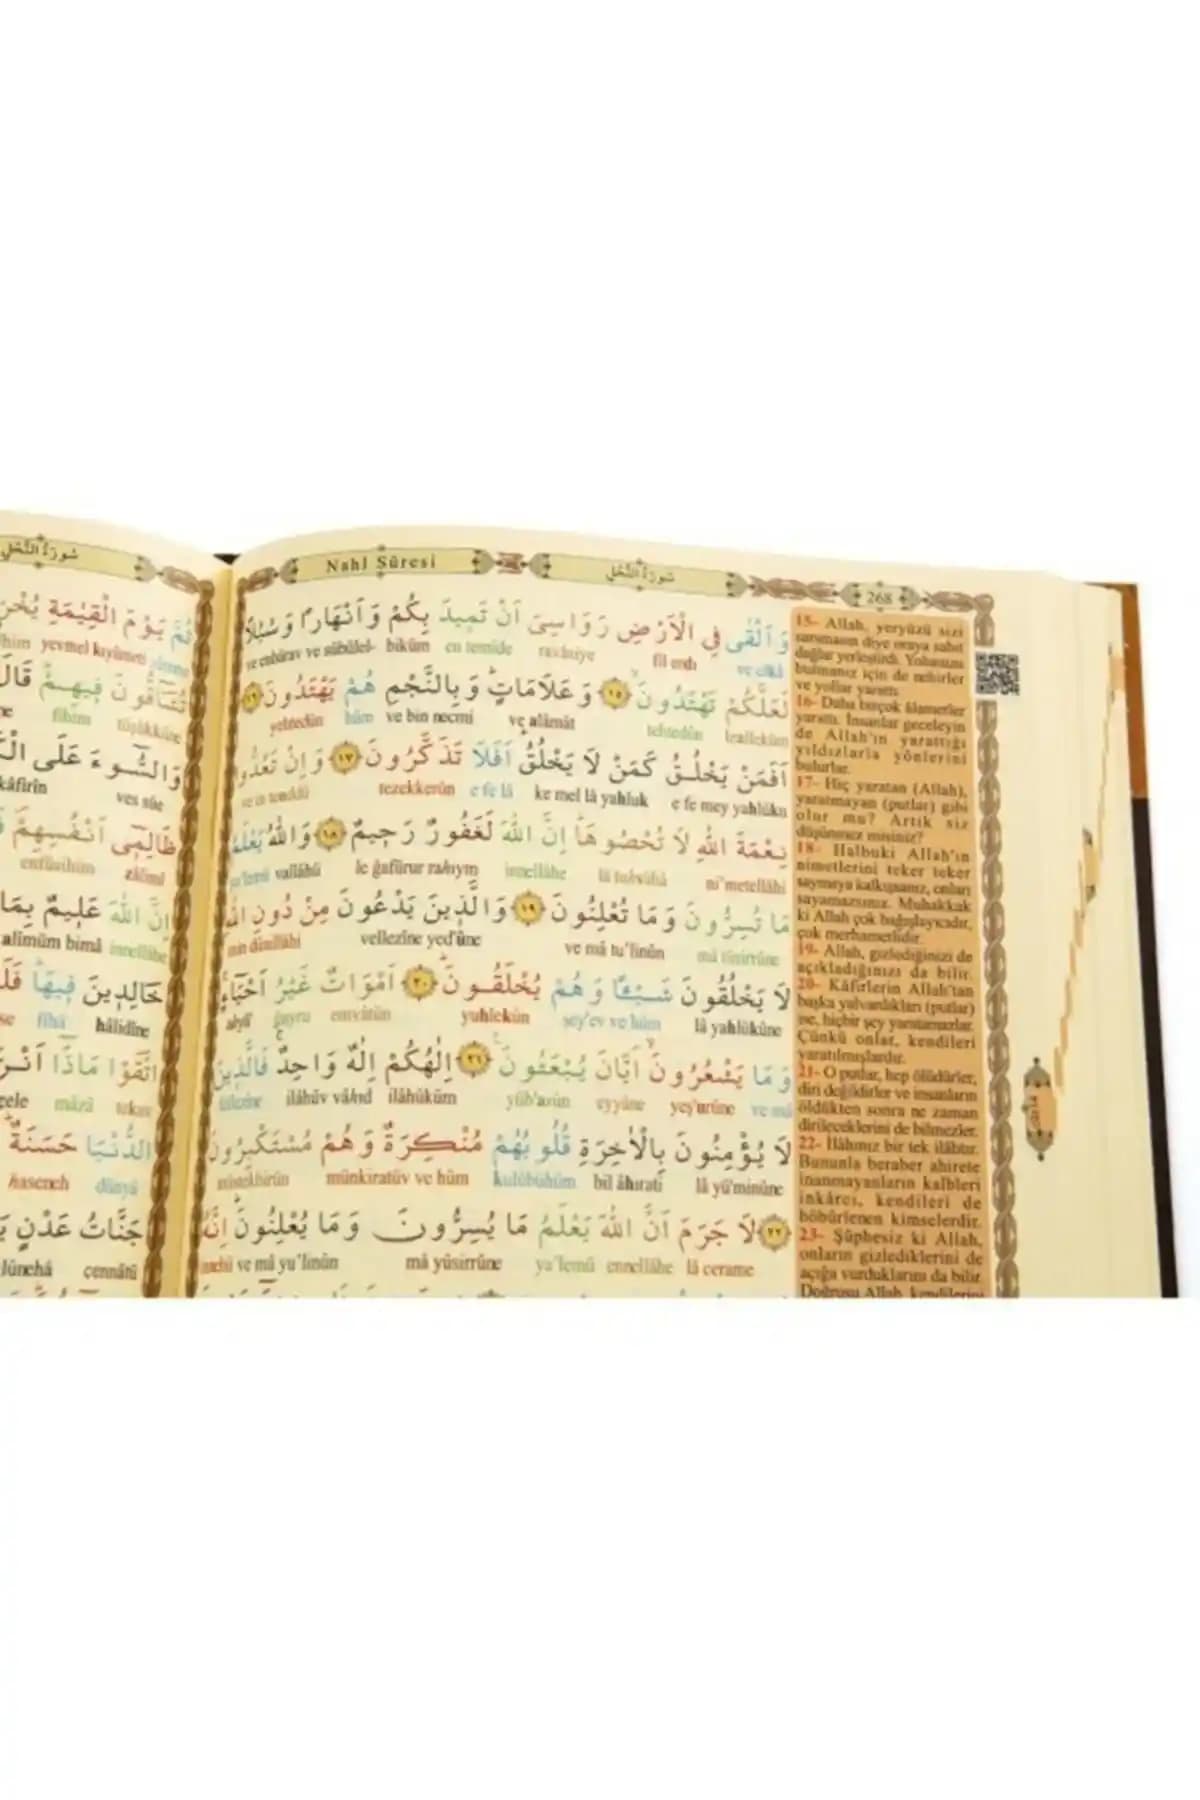 سُورَةُ النَّحْلِ
ثُمَّ يَوْمَ الْقِيٰمَةِ
yevmel kıyâmeti
تُشَٓاقُّونَ فِيهِمْ قَالَ
fîhim tüşâkkûne
وَالسُّٓوءَ عَلَى
kâfirîn ves sûe
ظَالِمِٓى اَنْفُسِهِمْ
enfüsihim zâlimî
اِنَّ اللّٰهَ عَلِيمٌ بِمَا
alîmüm bimâ innellâhe
خَالِدِينَ فِيهَا
fîhâ hâlidîne
اتَّقَوْا مَاذَٓا
mâzâ
الدُّنْيَا حَسَنَةٌ
haseneh dünyâ
جَنَّاتُ عَدْنٍ
cennâtü
Nahl Sûresi
سُورَةُ النَّحْلِ
268
وَاَلْقٰى فِى الْاَرْضِ رَوَاسِىَ اَنْ تَمِيدَ بِكُمْ وَاَنْهَارًا وَسُبُلًا
ve enhârav ve sübülel- biküm en temîde ravâsiye fil erdı ve elkâ
لَعَلَّكُمْ تَهْتَدُونَ ﴿١٥﴾ وَعَلَامَاتٍ وَبِالنَّجْمِ هُمْ يَهْتَدُونَ ﴿١٦﴾
yehtedûn hüm ve bin necmi ve alâmât tehtedûn lealleküm
اَفَمَنْ يَخْلُقُ كَمَنْ لَا يَخْلُقُ اَفَلَا تَذَكَّرُونَ ﴿١٧﴾ وَاِنْ تَعُدُّوا
ve in teuddû tezekkerûn e fe lâ ke mel lâ yahluk e fe mey yahlüku
نِعْمَةَ اللّٰهِ لَا تُحْصُوهَا اِنَّ اللّٰهَ لَغَفُورٌ رَحِيمٌ ﴿١٨﴾ وَاللّٰهُ يَعْلَمُ
ya'lemü vallâhü le ğafûrur rahıym innellâhe lâ tuhsûhâ ni'metellâhi
مَا تُسِرُّونَ وَمَا تُعْلِنُونَ ﴿١٩﴾ وَالَّذِينَ يَدْعُونَ مِنْ دُونِ اللّٰهِ
min dûnillâhi vellezîne yed'ûne ve mâ tu'linûn mâ tüsirrûne
لَا يَخْلُقُونَ شَيْـًٔا وَهُمْ يُخْلَقُونَ ﴿٢٠﴾ اَمْوَاتٌ غَيْرُ اَحْيَٓاءٍ
ahyâ' ğayru emvâtün yuhlekûn şey'ev ve hüm lâ yahlükûne
وَمَا يَشْعُرُونَ اَيَّانَ يُبْعَثُونَ ﴿٢١﴾ اِلٰهُكُمْ اِلٰهٌ وَاحِدٌ فَالَّذِينَ
fellezîne ilâhüv vâhıd ilâhüküm yüb'asûn eyyâne yeş'urûne ve mâ
لَا يُؤْمِنُونَ بِالْاٰخِرَةِ قُلُوبُهُمْ مُنْكِرَةٌ وَهُمْ مُسْتَكْبِرُونَ
müstekbirûn münkiratüv ve hüm kulûbühüm bil âhırati lâ yü'minûne
﴿٢٢﴾ لَا جَرَمَ اَنَّ اللّٰهَ يَعْلَمُ مَا يُسِرُّونَ وَمَا يُعْلِنُونَ اِنَّهُ
innehû ve mâ yu'linûn mâ yüsirrûne ya'lemü ennellâhe lâ cerame
15- Allah, yeryüzü sizi
sarsmasın diye oraya sabit
dağlar yerleştirdi. Yolunuzu
bulmanız için de nehirler
ve yollar yarattı.
16- Daha birçok âlametler
yarattı. İnsanlar geceleyin
de Allah'ın yarattığı
yıldızlarla yönlerini
bulurlar.
17- Hiç yaratan (Allah),
yaratmayan (putlar) gibi
olur mu? Artık siz
düşünmez misiniz?
18- Halbuki Allah'ın
nimetlerini teker teker
saymaya kalkışsanız, onları
sayamazsınız. Muhakkak
ki Allah çok bağışlayıcıdır,
çok merhametlidir.
19- Allah, gizlediğinizi de
açıkladığınızı da bilir.
20- Kâfirlerin Allah'tan
başka yalvardıkları (putlar)
ise, hiçbir şey yaratamazlar.
Çünkü onlar, kendileri
yaratılmışlardır.
21- O putlar, hep ölüdürler,
diri değildirler ve insanların
öldükten sonra ne zaman
dirileceklerini de bilmezler.
22- İlâhınız bir tek ilâhtır.
Bununla beraber ahirete
inanmayanların kalbleri
inkârcı, kendileri de
böbürlenen kimselerdir.
23- Şüphesiz ki Allah,
onların gizlediklerini de
açığa vurduklarını da bilir.
Doğrusu Allah, kendilerini